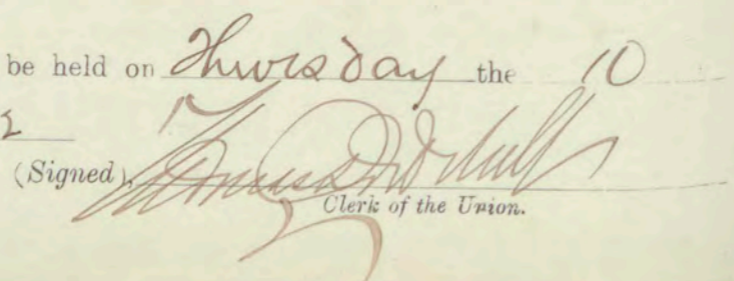 be held on Thursday the 10
2
(Signed),
Clerk of the Union.